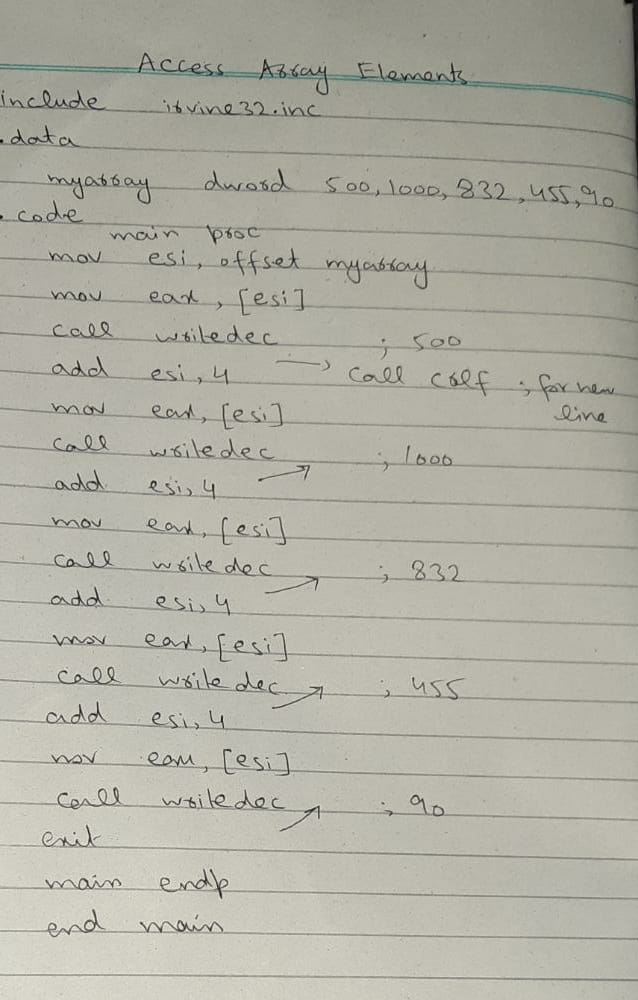 Access Array Elements
include irvine32.inc
.data
myarray dword 500, 1000, 832, 455, 90
.code
main proc
mov esi, offset myarray
mov eax, [esi]
call writedec ; 500
add esi, 4 → call crlf ; for new line
mov eax, [esi]
call writedec ; 1000
add esi, 4
mov eax, [esi]
call writedec ; 832
add esi, 4
mov eax, [esi]
call writedec ; 455
add esi, 4
mov eax, [esi]
call writedec ; 90
exit
main endp
end main